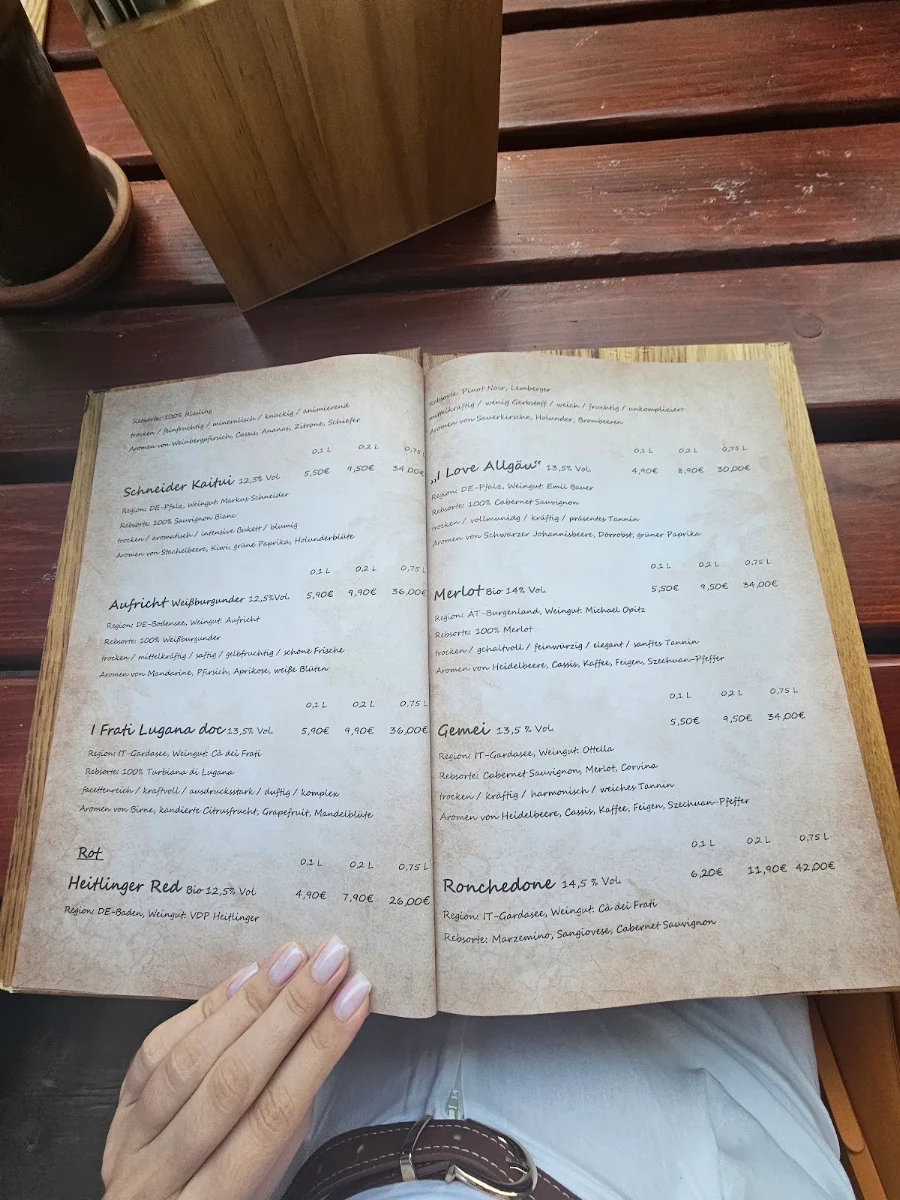 Rebsorte: 100% Riesling
trocken / feinfruchtig / mineralisch / knackig / animierend
Aromen von Weinbergpfirsich, Cassis, Ananas, Zitrone, Schiefer
0,1 L 0,2 L 0,75 L
Schneider Kaitui 12,5% Vol 5,50€ 9,50€ 34,00€
Region: DE-Pfalz, Weingut: Markus Schneider
Rebsorte: 100% Sauvignon Blanc
trocken / aromatisch / intensive Bukett / blumig
Aromen von Stachelbeere, Kiwi, grüne Paprika, Holunderblüte
0,1 L 0,2 L 0,75 L
Aufricht Weißburgunder 12,5%Vol. 5,90€ 9,90€ 36,00€
Region: DE-Bodensee, Weingut: Aufricht
Rebsorte: 100% Weißburgunder
trocken / mittelkräftig / saftig / gelbfruchtig / schöne Frische
Aromen von Mandarine, Pfirsich, Aprikose, weiße Blüten
0,1 L 0,2 L 0,75 L
I Frati Lugana doc 13,5% Vol. 5,90€ 9,90€ 36,00€
Region: IT-Gardasee, Weingut: Cà dei Frati
Rebsorte: 100% Turbiana di Lugana
facettenreich / kraftvoll / ausdrucksstark / duftig / komplex
Aromen von Birne, kandierte Citrusfrucht, Grapefruit, Mandelblüte
Rot
0,1 L 0,2 L 0,75 L
Heitlinger Red Bio 12,5% Vol 4,90€ 7,90€ 26,00€
Region: DE-Baden, Weingut: VDP Heitlinger
Rebsorte: Pinot Noir, Lemberger
mittelkräftig / wenig Gerbstoff / weich / fruchtig / unkompliziert
Aromen von Sauerkirsche, Holunder, Brombeeren
0,1 L 0,2 L 0,75 L
„I Love Allgäu“ 13,5% Vol. 4,90€ 8,90€ 30,00€
Region: DE-Pfalz, Weingut: Emil Bauer
Rebsorte: 100% Cabernet Sauvignon
trocken / vollmunidg / kräftig / präsentes Tannin
Aromen von Schwarzer Johannisbeere, Dörrobst, grüner Paprika
0,1 L 0,2 L 0,75 L
Merlot Bio 14% Vol. 5,50€ 9,50€ 34,00€
Region: AT-Burgenland, Weingut: Michael Opitz
Rebsorte: 100% Merlot
trocken / gehaltvoll / feinwürzig / elegant / sanftes Tannin
Aromen von Heidelbeere, Cassis, Kaffee, Feigen, Szechuan-Pfeffer
0,1 L 0,2 L 0,75 L
Gemei 13,5 % Vol. 5,50€ 9,50€ 34,00€
Region: IT-Gardasee, Weingut: Ottella
Rebsorte: Cabernet Sauvignon, Merlot, Corvina
trocken / kräftig / harmonisch / weiches Tannin
Aromen von Heidelbeere, Cassis, Kaffee, Feigen, Szechuan-Pfeffer
0,1 L 0,2 L 0,75 L
Ronchedone 14,5 % Vol. 6,20€ 11,90€ 42,00€
Region: IT-Gardasee, Weingut: Cà dei Frati
Rebsorte: Marzemino, Sangiovese, Cabernet Sauvignon